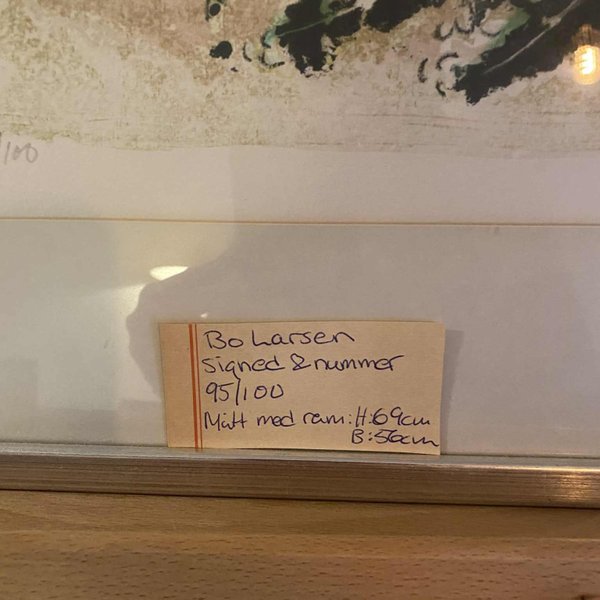 /100
Bo Larsen
Signed & nummer
95/100
Mått med ram: H: 69cm
B: 56cm